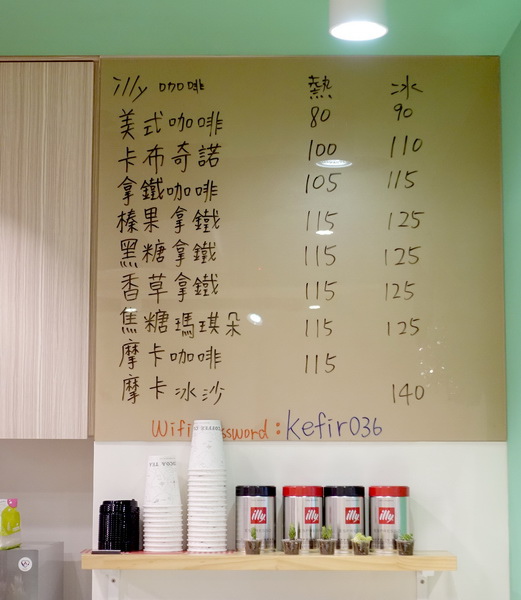 illy 咖啡 熱 冰
美式咖啡 80 90
卡布奇諾 100 110
拿鐵咖啡 105 115
榛果拿鐵 115 125
黑糖拿鐵 115 125
香草拿鐵 115 125
焦糖瑪琪朵 115 125
摩卡咖啡 115
摩卡冰沙 140
Wifi ssword: kefir036
illy illy illy illy